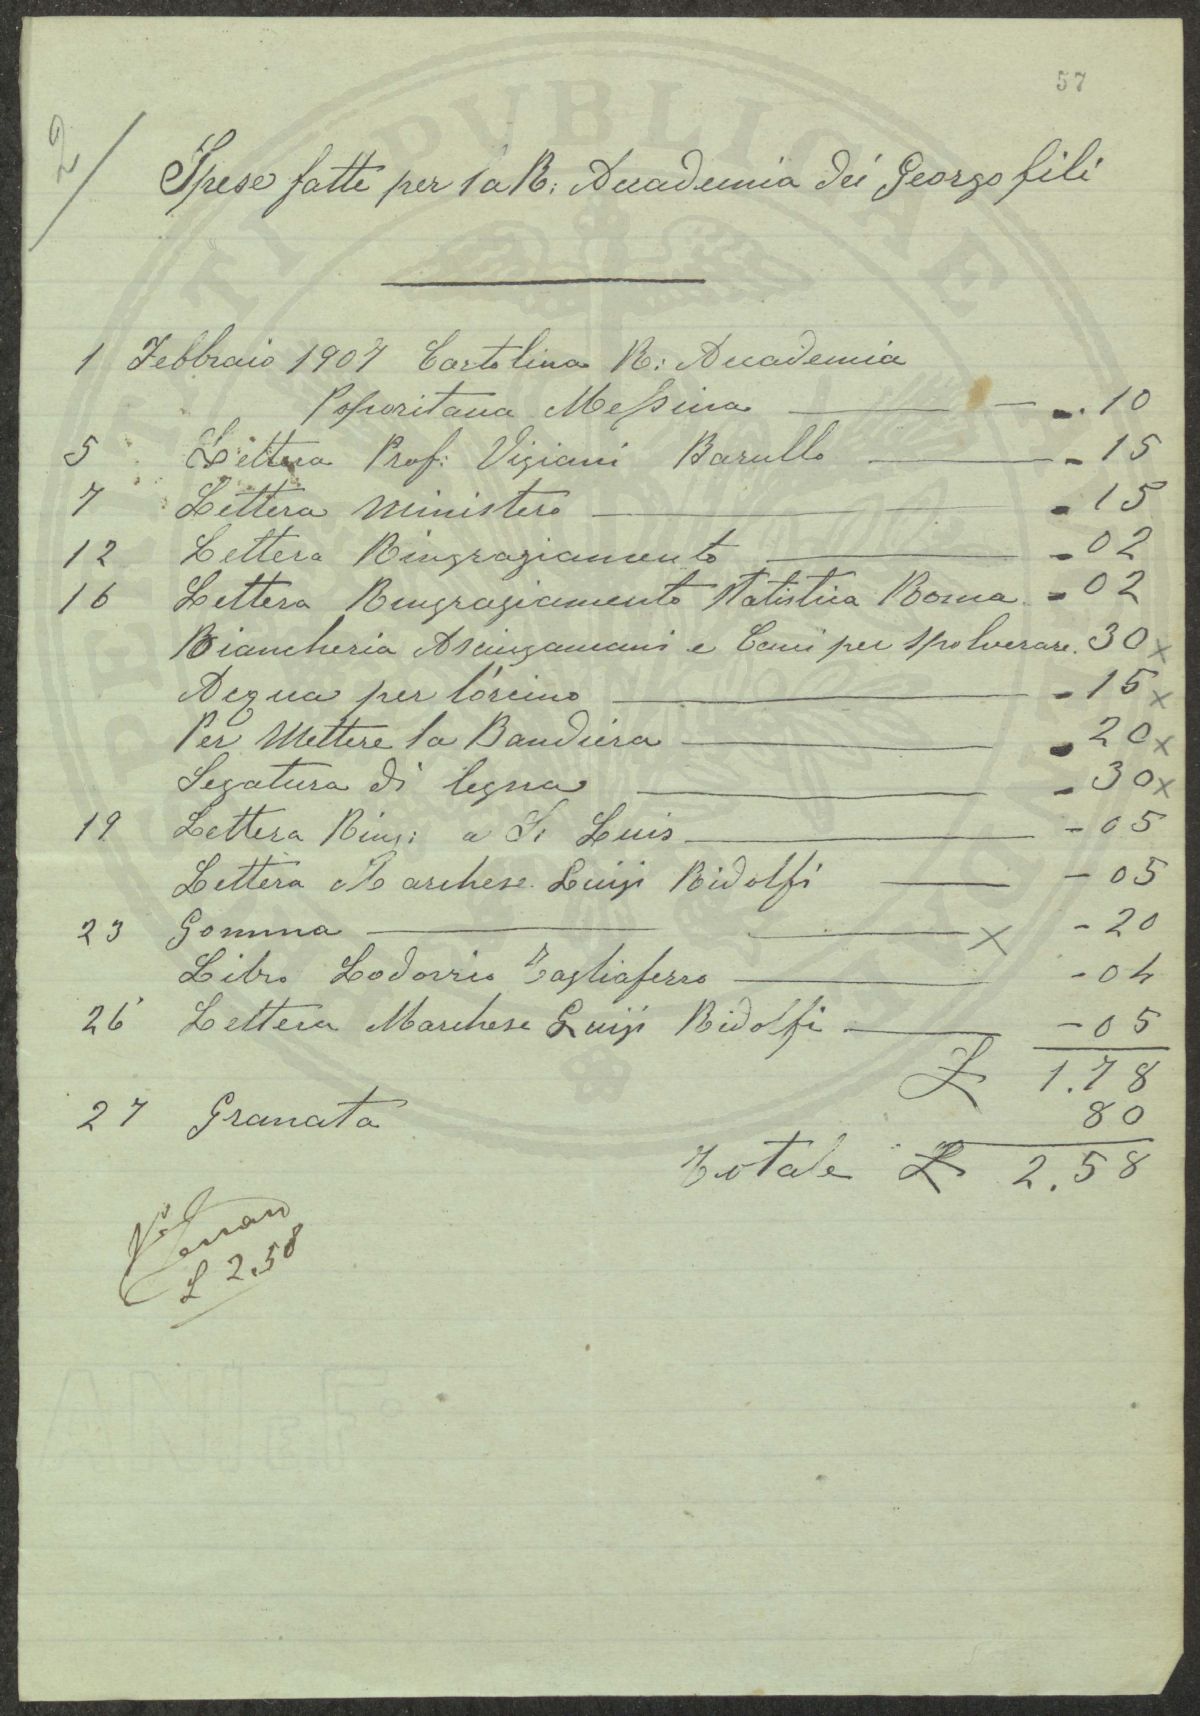 57
2/
Spese fatte per la R: Accademia dei Georgofili
1 Febbraio 1907 Cartolina R: Accademia
Poporitana Messina — - . 10
5 Lettera Prof: Vigiani Barullo — - 15
7 Lettera Ministero — - 15
12 Lettera Ringraziamento — - 02
16 Lettera Ringraziamento Statistica Roma - 02
Biancheria Asciugamani e Cenci per spolverare. 30 x
Acqua per l'orcino — - 15 x
Per Mettere la Bandiera — - 20 x
Segatura di legna — - 30 x
19 Lettera Ring: a S. Luis — - 05
Lettera Marchese Luigi Ridolfi — - 05
23 Gomma — x - 20
Libro Lodovico Tagliaferro — - 04
26 Lettera Marchese Luigi Ridolfi — - 05
£ 1.78
27 Granata 80
Totale £ 2.58
Vo
£ 2.58